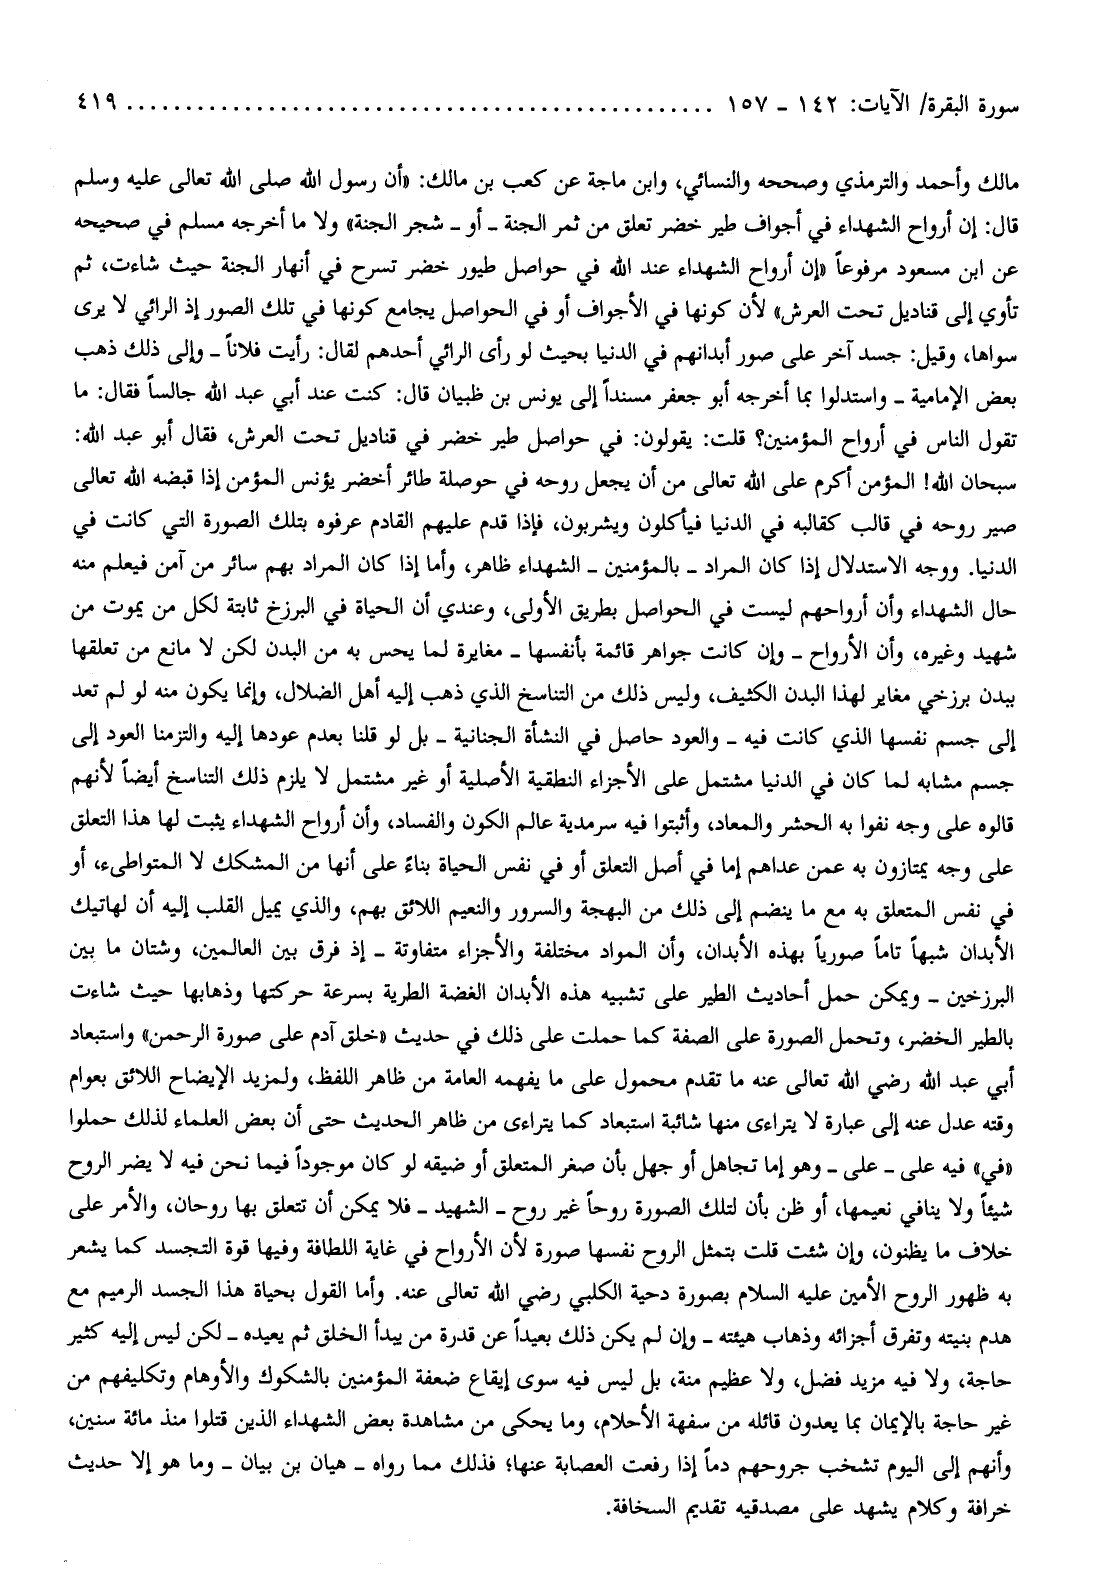 سورة البقرة/ الآيات: ١٤٢ ـ ١٥٧ .................................................. ٤١٩
مالك وأحمد والترمذي وصححه والنسائي، وابن ماجة عن كعب بن مالك: «أن رسول الله صلى الله تعالى عليه وسلم
قال: إن أرواح الشهداء في أجواف طير خضر تعلق من ثمر الجنة ـ أو ـ شجر الجنة» ولا ما أخرجه مسلم في صحيحه
عن ابن مسعود مرفوعاً «إن أرواح الشهداء عند الله في حواصل طيور خضر تسرح في أنهار الجنة حيث شاءت، ثم
تأوي إلى قناديل تحت العرش» لأن كونها في الأجواف أو في الحواصل يجامع كونها في تلك الصور إذ الرائي لا يرى
سواها، وقيل: جسد آخر على صور أبدانهم في الدنيا بحيث لو رأى الرائي أحدهم لقال: رأيت فلاناً ـ وإلى ذلك ذهب
بعض الإمامية ـ واستدلوا بما أخرجه أبو جعفر مسنداً إلى يونس بن ظبيان قال: كنت عند أبي عبد الله جالساً فقال: ما
تقول الناس في أرواح المؤمنين؟ قلت: يقولون: في حواصل طير خضر في قناديل تحت العرش، فقال أبو عبد الله:
سبحان الله! المؤمن أكرم على الله تعالى من أن يجعل روحه في حوصلة طائر أخضر يؤنس المؤمن إذا قبضه الله تعالى
صير روحه في قالب كقالبه في الدنيا فيأكلون ويشربون، فإذا قدم عليهم القادم عرفوه بتلك الصورة التي كانت في
الدنيا. ووجه الاستدلال إذا كان المراد ـ بالمؤمنين ـ الشهداء ظاهر، وأما إذا كان المراد بهم سائر من آمن فيعلم منه
حال الشهداء وأن أرواحهم ليست في الحواصل بطريق الأولى، وعندي أن الحياة في البرزخ ثابتة لكل من يموت من
شهيد وغيره، وأن الأرواح ـ وإن كانت جواهر قائمة بأنفسها ـ مغايرة لما يحس به من البدن لكن لا مانع من تعلقها
ببدن برزخي مغاير لهذا البدن الكثيف، وليس ذلك من التناسخ الذي ذهب إليه أهل الضلال، وإنما يكون منه لو لم تعد
إلى جسم نفسها الذي كانت فيه ـ والعود حاصل في النشأة الجنانية ـ بل لو قلنا بعدم عودها إليه والتزمنا العود إلى
جسم مشابه لما كان في الدنيا مشتمل على الأجزاء النطقية الأصلية أو غير مشتمل لا يلزم ذلك التناسخ أيضاً لأنهم
قالوه على وجه نفوا به الحشر والمعاد، وأثبتوا فيه سرمدية عالم الكون والفساد، وأن أرواح الشهداء يثبت لها هذا التعلق
على وجه يمتازون به عمن عداهم إما في أصل التعلق أو في نفس الحياة بناءً على أنها من المشكك لا المتواطىء، أو
في نفس المتعلق به مع ما ينضم إلى ذلك من البهجة والسرور والنعيم اللائق بهم، والذي يميل القلب إليه أن لهاتيك
الأبدان شبهاً تاماً صورياً بهذه الأبدان، وأن المواد مختلفة والأجزاء متفاوتة ـ إذ فرق بين العالمين، وشتان ما بين
البرزخين ـ ويمكن حمل أحاديث الطير على تشبيه هذه الأبدان الغضة الطرية بسرعة حركتها وذهابها حيث شاءت
بالطير الخضر، وتحمل الصورة على الصفة كما حملت على ذلك في حديث «خلق آدم على صورة الرحمن» واستبعاد
أبي عبد الله رضي الله تعالى عنه ما تقدم محمول على ما يفهمه العامة من ظاهر اللفظ، ولمزيد الإيضاح اللائق بعوام
وقته عدل عنه إلى عبارة لا يتراءى منها شائبة استبعاد كما يتراءى من ظاهر الحديث حتى أن بعض العلماء لذلك حملوا
«في» فيه على ـ على ـ وهو إما تجاهل أو جهل بأن صغر المتعلق أو ضيقه لو كان موجوداً فيما نحن فيه لا يضر الروح
شيئاً ولا ينافي نعيمها، أو ظن بأن لتلك الصورة روحاً غير روح ـ الشهيد ـ فلا يمكن أن تتعلق بها روحان، والأمر على
خلاف ما يظنون، وإن شئت قلت بتمثل الروح نفسها صورة لأن الأرواح في غاية اللطافة وفيها قوة التجسد كما يشعر
به ظهور الروح الأمين عليه السلام بصورة دحية الكلبي رضي الله تعالى عنه. وأما القول بحياة هذا الجسد الرميم مع
هدم بنيته وتفرق أجزائه وذهاب هيئته ـ وإن لم يكن ذلك بعيداً عن قدرة من يبدأ الخلق ثم يعيده ـ لكن ليس إليه كثير
حاجة، ولا فيه مزيد فضل، ولا عظيم منة، بل ليس فيه سوى إيقاع ضعفة المؤمنين بالشكوك والأوهام وتكليفهم من
غير حاجة بالإيمان بما يعدون قائله من سفهة الأحلام، وما يحكى من مشاهدة بعض الشهداء الذين قتلوا منذ مائة سنين،
وأنهم إلى اليوم تشخب جروحهم دماً إذا رفعت العصابة عنها؛ فذلك مما رواه ـ هيان بن بيان ـ وما هو إلا حديث
خرافة وكلام يشهد على مصدقيه تقديم السخافة.